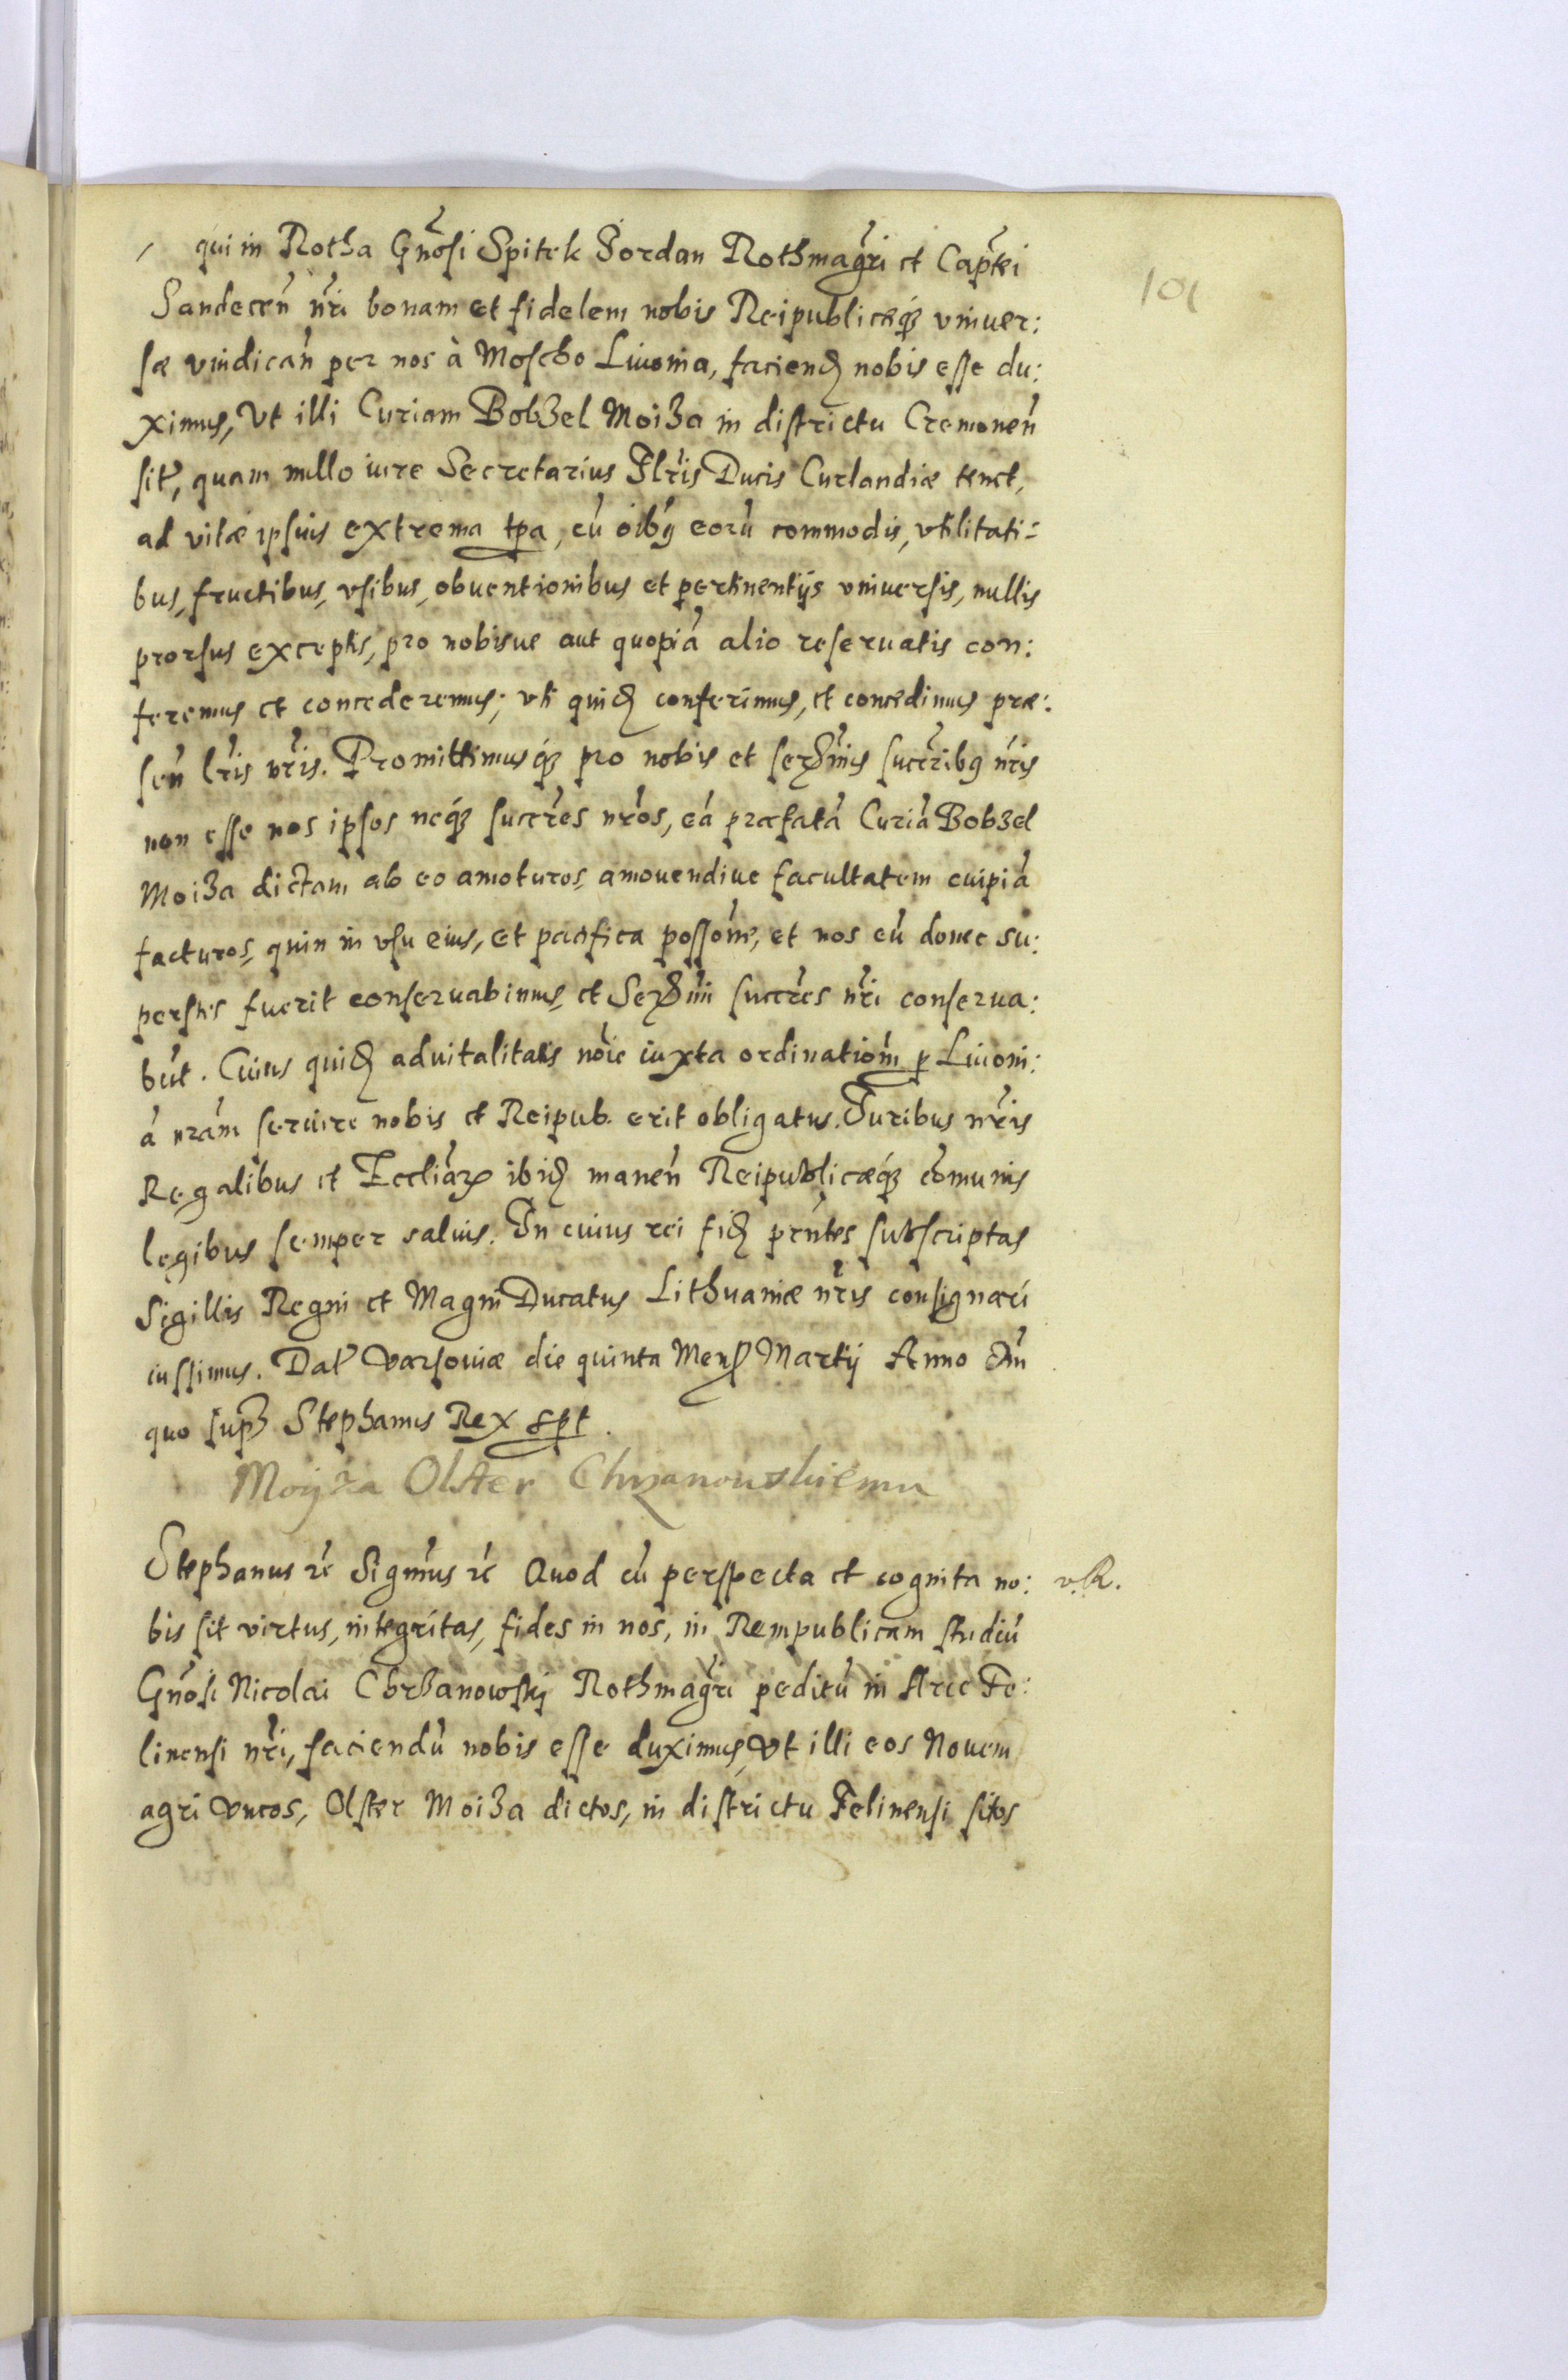 101
qui in Rotha Gnosi Spitek Jordan Rothmagri et Captei
Sandecen nri bonam et fidelem nobis Reipublicæq3 vniuer:
sæ vindican per nos à Moscho Liuonia, faciend nobis esse du:
ximus, Vt illi Curiam Bobzel Moiza in districtu Cremonen
sit, quam nullo iure Secretarius Illris Ducis Curlandiæ tenet,
ad vitæ ipsius extrema tpa, cu oibq eoru commodis, vtilitati:
bus, fructibus, vsibus, obuentionibus et pertinentijs vniuersis, nullis
prorsus exceptis, pro nobisue aut quopia alio reseruatis con:
feremus et concederemus; vti quid conferimus, et concedimus præ:
sen lris nris. Promittimusq3 pro nobis et sermis succribq nris
non esse nos ipsos neq3 succres nros, ea præfata Curia Bobzel
Moiza dictam ab eo amoturos, amouendiue facultatem cuipia
facturos, quin in vsu eius, et pacifica possone, et nos eu donec su:
perstes fuerit conseruabimus, et Sermi succres nri conserua:
but. Cuius quid aduitalitatis noie iuxta ordinationm p Liuoni:
a nram seruire nobis et Reipub. erit obligatus. Iuribus nris
Regalibus et Eccliar ibid manen Reipublicæq3 comunis
legibus semper saluis. In cuius rei fid prntes subscriptas
Sigillis Regni et Magni Ducatus Lithuaniæ nris consignari
iussimus. Dat Varsouiæ die quinta Mens Martij Anno Dni
quo sup Stephanus Rex spt.
Moyza Olster Chrzanowskiemu
Stephanus rc Sigmus rc Quod cu perspecta et cognita no:
v.R.
bis sit virtus, integritas, fides in nos, in Rempublicam studiu
Gnosi Nicolai Chrzanowskj Rothmagri peditu in Arce Fe:
linensi nri, faciendu nobis esse duximus, Vt illi eos Nouem
agri Vncos, Olster Moiza dictos, in districtu Felinensi sitos